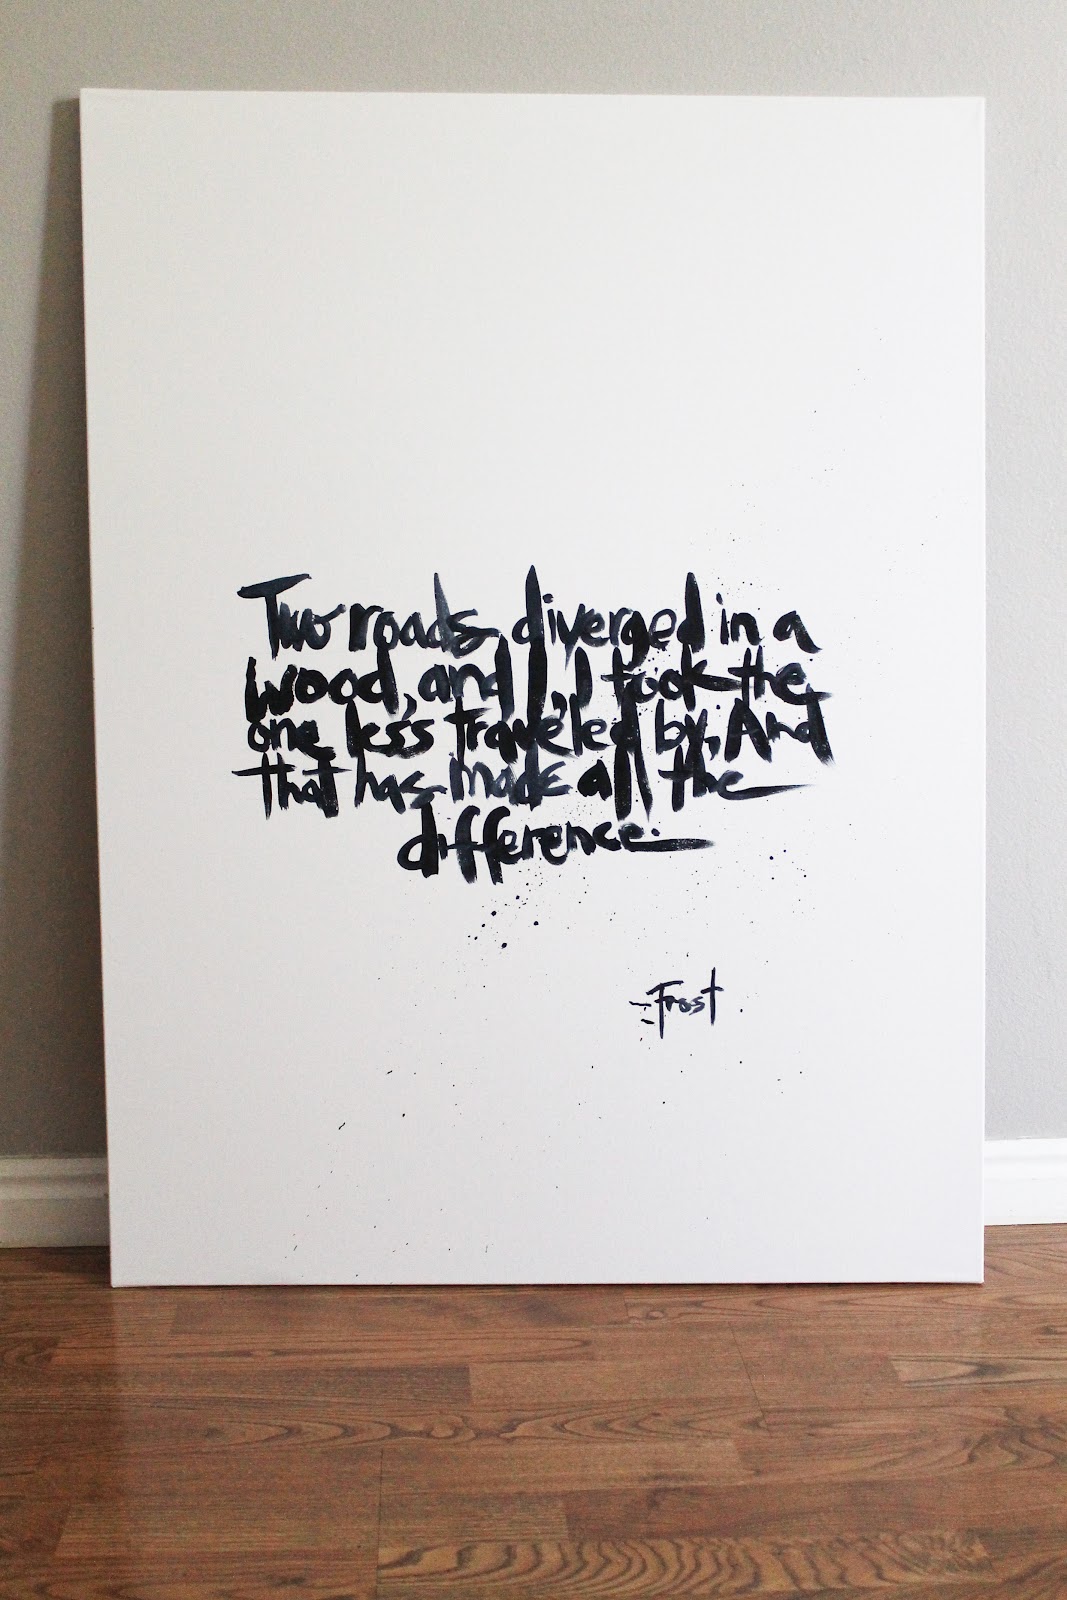 Two roads diverged in a
wood, and I, I took the
one less traveled by, And
that has made all the
difference.
-Frost